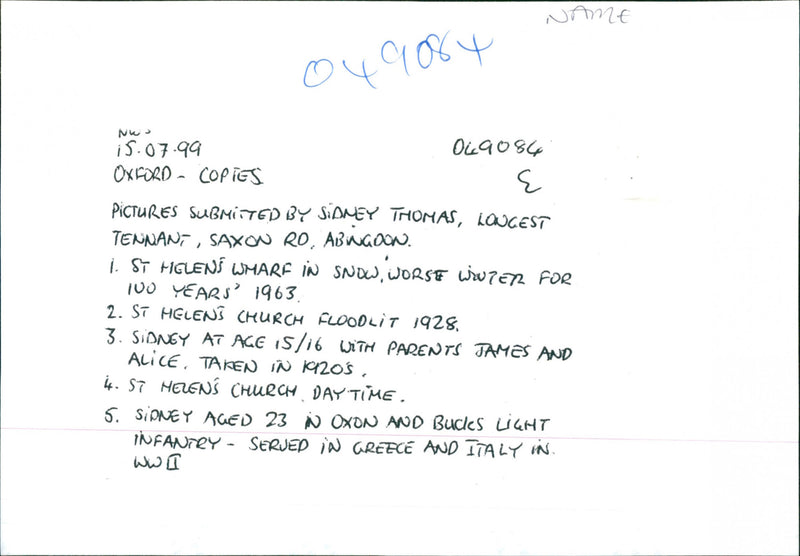 NAME
049084
15.07.99
049084
OXFORD - COPIES
PICTURES SUBMITTED BY SIDNEY THOMAS, LONGEST
TENNANT, SAXON RD, ABINGDON.
1. ST HELEN'S WHARF IN SNOW, 'WORST WINTER FOR
100 YEARS' 1963.
2. ST HELEN'S CHURCH FLOODLIT 1928.
3. SIDNEY AT AGE 15/16 WITH PARENTS JAMES AND
ALICE. TAKEN IN 1920'S.
4. ST HELEN'S CHURCH DAYTIME.
5. SIDNEY AGED 23 IN OXON AND BUCKS LIGHT
INFANTRY - SERVED IN GREECE AND ITALY IN
WW II